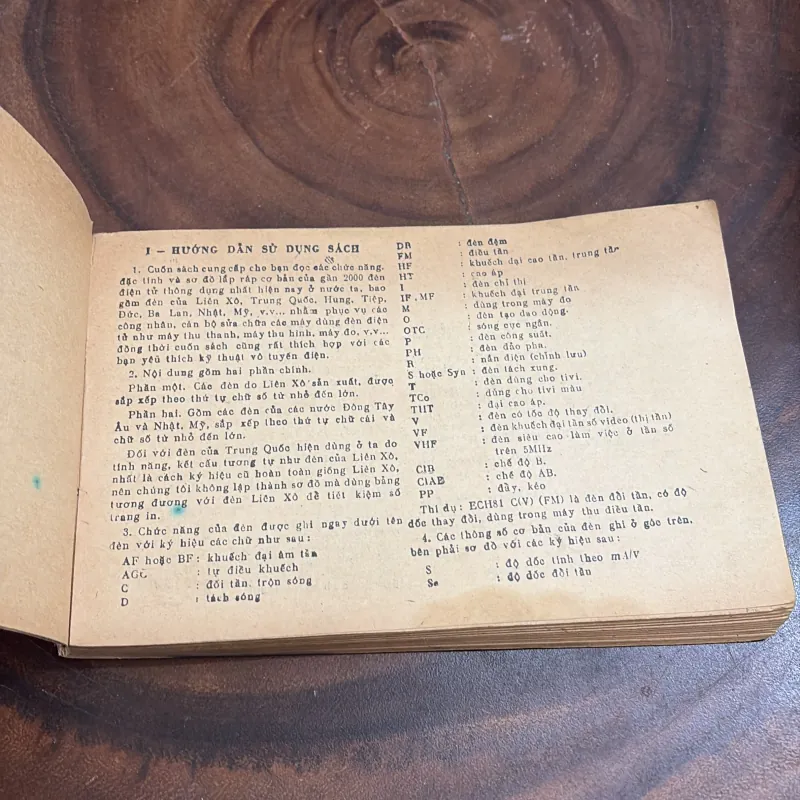 I - HƯỚNG DẪN SỬ DỤNG SÁCH
1. Cuốn sách cung cấp cho bạn đọc các chức năng,
đặc tính và sơ đồ lắp ráp cơ bản của gần 2000 đèn
điện tử thông dụng nhất hiện nay ở nước ta, bao
gồm đèn của Liên Xô, Trung Quốc, Hung, Tiệp,
Đức, Ba Lan, Nhật, Mỹ, v.v... nhằm phục vụ các
công nhân, cán bộ sửa chữa các máy dùng đèn điện
tử như máy thu thanh, máy thu hình, máy đo, v.v...
đồng thời cuốn sách cũng rất thích hợp với các
bạn yêu thích kỹ thuật vô tuyến điện.
2. Nội dung gồm hai phần chính.
Phần một. Các đèn do Liên Xô sản xuất, được
sắp xếp theo thứ tự chữ số từ nhỏ đến lớn.
Phần hai. Gồm các đèn của các nước Đông Tây
Âu và Nhật, Mỹ, sắp xếp theo thứ tự chữ cái và
chữ số từ nhỏ đến lớn.
Đối với đèn của Trung Quốc hiện dùng ở ta do
tính năng, kết cấu tương tự như đèn của Liên Xô,
nhất là cách ký hiệu cũ hoàn toàn giống Liên Xô,
nên chúng tôi không lập thành sơ đồ mà dùng bảng
tương đương với đèn Liên Xô để tiết kiệm số
trang in.
3. Chức năng của đèn được ghi ngay dưới tên
đèn với ký hiệu các chữ như sau:
AF hoặc BF: khuếch đại âm tần
AGC : tự điều khuếch
C : đổi tần, trộn sóng
D : tách sóng
DR : đèn đệm
FM : điều tần
HF : khuếch đại cao tần, trung tần
HT : cao áp
I : đèn chỉ thị
IF, MF : khuếch đại trung tần
M : dùng trong máy đo
O : đèn tạo dao động.
OTC : sóng cực ngắn.
P : đèn công suất.
PH : đèn đảo pha.
R : nắn điện (chỉnh lưu)
S hoặc Syn : đèn tách xung.
T : đèn dùng cho tivi.
TCo : dùng cho tivi màu
THT : đại cao áp.
V : đèn có tốc độ thay đổi.
VF : đèn khuếch đại tần số video (thị tần)
VHF : đèn siêu cao làm việc ở tần số
trên 5MHz
ClB : chế độ B.
ClAB : chế độ AB.
PP : đẩy, kéo
Thí dụ: ECH81 C(V) (FM) là đèn đổi tần, có độ
dốc thay đổi, dùng trong máy thu điều tần.
4. Các thông số cơ bản của đèn ghi ở góc trên,
bên phải sơ đồ với các ký hiệu sau:
S : độ dốc tính theo mA/V
Sc : độ dốc đổi tần